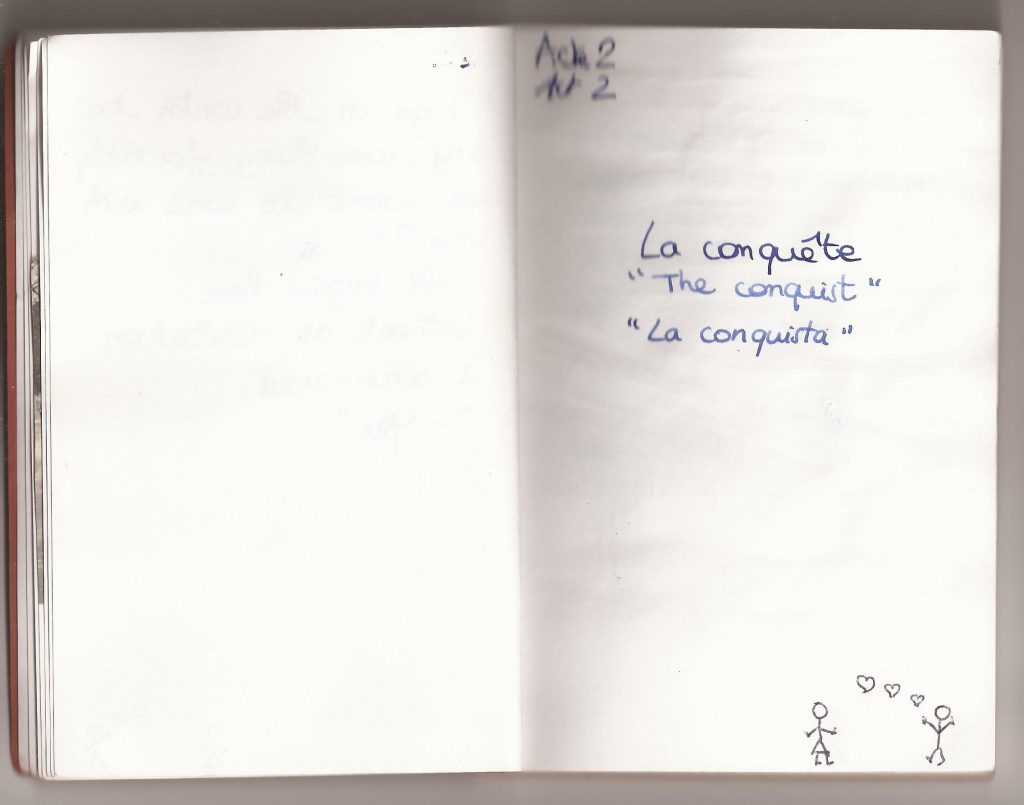 Acte 2
Act 2
La conquête
"The conquist"
"La conquista"